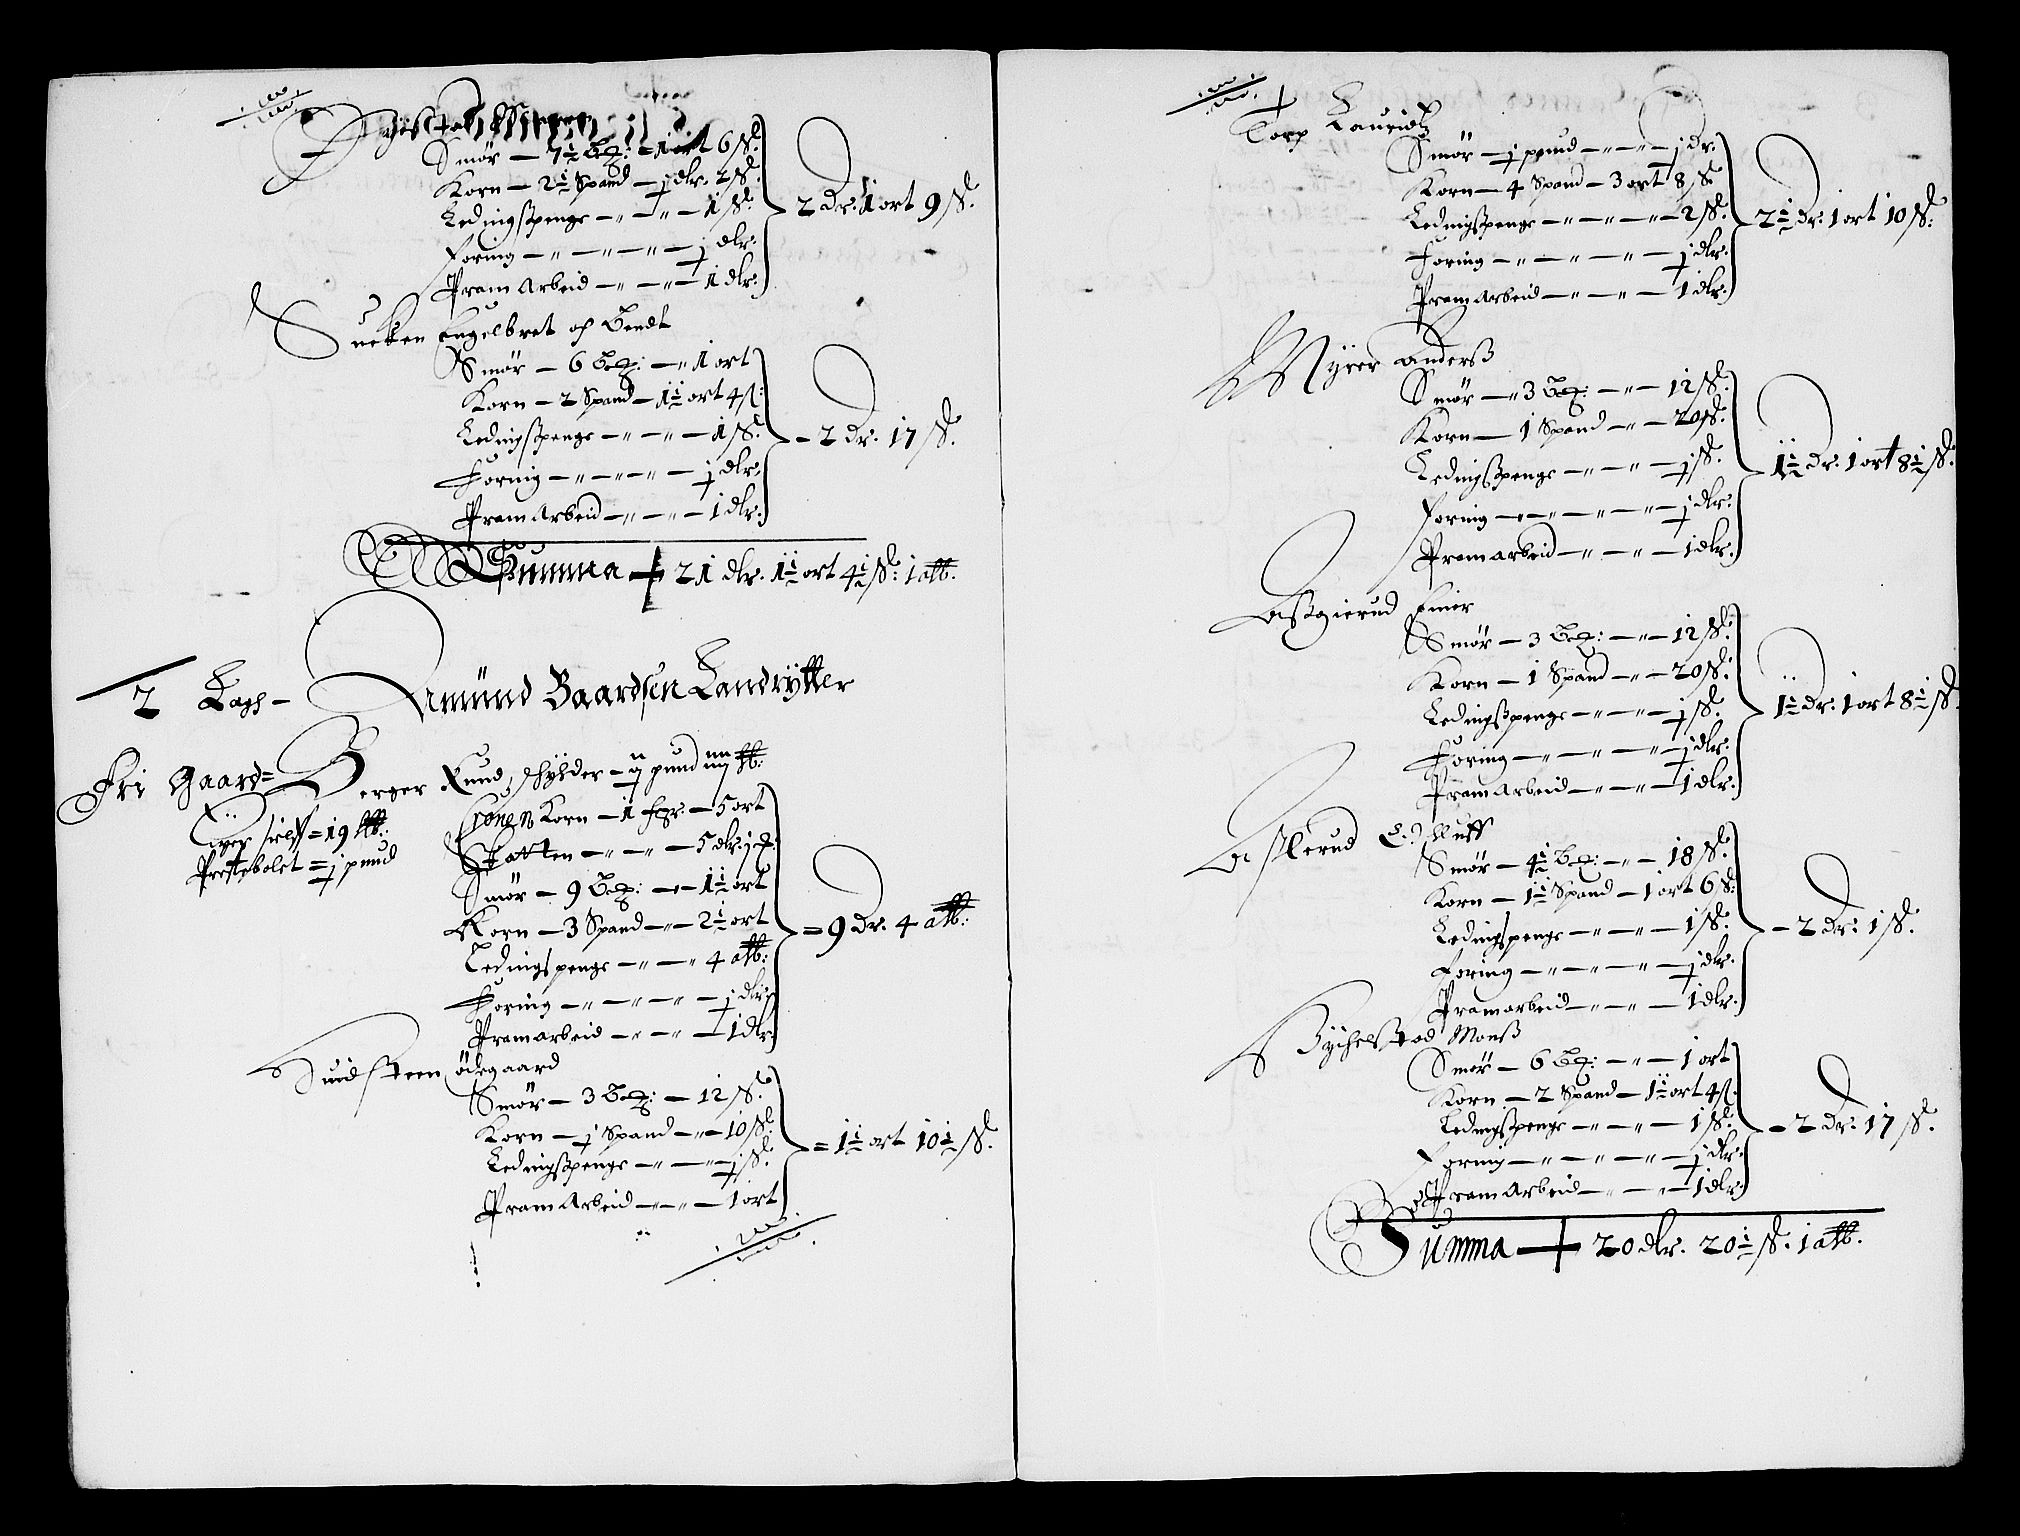 Smør — 7½ Bß: — 1 ort 6 ſß.
Korn — 2½ Spand — ½ dlr. 2 ſß.
Ledingßpenge — „ — „ — 1 ſß.
Foring — „ — „ — „ — ½ dlr.
Pram Arbeid — „ — „ — 1 dlr.
2 Dr. 1 ort 9 ſß.
Engelbret och Bendt
Smør — 6 Bß: — „ 1 ort
Korn — 2 Spand — 1½ ort 4 ß:
Ledingßpenge — „ — „ — 1 ſß.
Foring — „ — „ — „ — ½ dlr.
Pram Arbeid — „ — „ — 1 dlr.
— 2 Dr. 17 ſß.
Summa — 21 dlr. 1½ ort 4½ ſß: 1 alb.
2 Lagh — Amund Baardsen Landrytter
Fri Gaard = Berger Rund, schylder —
= 19
Prestebolet = ½ pund
Cronens Korn — 1 — 5 ort
Skatten — „ — „ — 5 dlr.
Smør — 9 Bß: — „ — 1½ ort
Korn — 3 Spand — „ — 2½ ort
Ledingspenge — „ — „ 4 alb:
Foring — „ — „ — „ — ½ dlr.
Pramarbeid — „ — „ — 1 dlr.
= 9 Dr. 4 alb:
ødegaard
Smør — 3 Bß: — 12 ſß.
Korn — ½ Spand — „ — 10 ſß.
Ledingßpenge — „ — „ — ½ ſß.
Pram Arbeid — „ — „ — 1 ort
= 1½ ort 10½ ſß.
Torp Lauridtz
Smør — ½ pund — „ — „ — ½ dr.
Korn — 4 Spand — 3 ort 8 ſß
Ledingßpenge — „ — „ — „ — 2 ſß.
Foring — „ — „ — „ — ½ dlr.
Pramarbeid — „ — „ — 1 dlr.
2½ dr. 1 ort 10 ſß:
Myrer Anderß
Smør — „ 3 Bß: — „ — 12 ſß.
Korn — 1 Spand — „ — 20 ſß.
Ledingßpenge — „ — „ — ½ ſß.
Foring — „ — „ — „ — ½ dlr.
Pramarbeid — „ — „ — 1 dlr.
1½ dr. 1 ort 8½ ſß.
Aßgierud Einer
Smør — 3 Bß: — „ — 12 ſß.
Korn — 1 Spand — „ — 20 ſß.
Ledingßpenge — „ — „ — ½ ſß.
Foring — „ — „ — „ — ½ dlr.
Pramarbeid — „ — „ — 1 dlr.
1½ dr: 1 ort 8½ ſß.
Aslerud
Smør — 4½ Bß: — „ — 18 ſß.
Korn — 1½ Spand — 1 ort 6 ß:
Ledingspenge — „ — „ — 1 ſß.
Foring — „ — „ — „ — ½ dlr.
Pramarbeid — „ — „ — 1 dlr.
— 2 Dr: 1 ſß.
Monß
Smør — 6 Bß: — „ — 1 ort
Korn — 2 Spand — 1½ ort 4 ß.
Ledingßpenge — „ — „ — 1 ſß.
Foring — „ — „ — „ — ½ dlr.
Pramarbeid — „ — „ — 1 dlr.
— 2 Dr: 17 ſß.
Summa — 20 dlr. 20½ ſß. 1 alb.